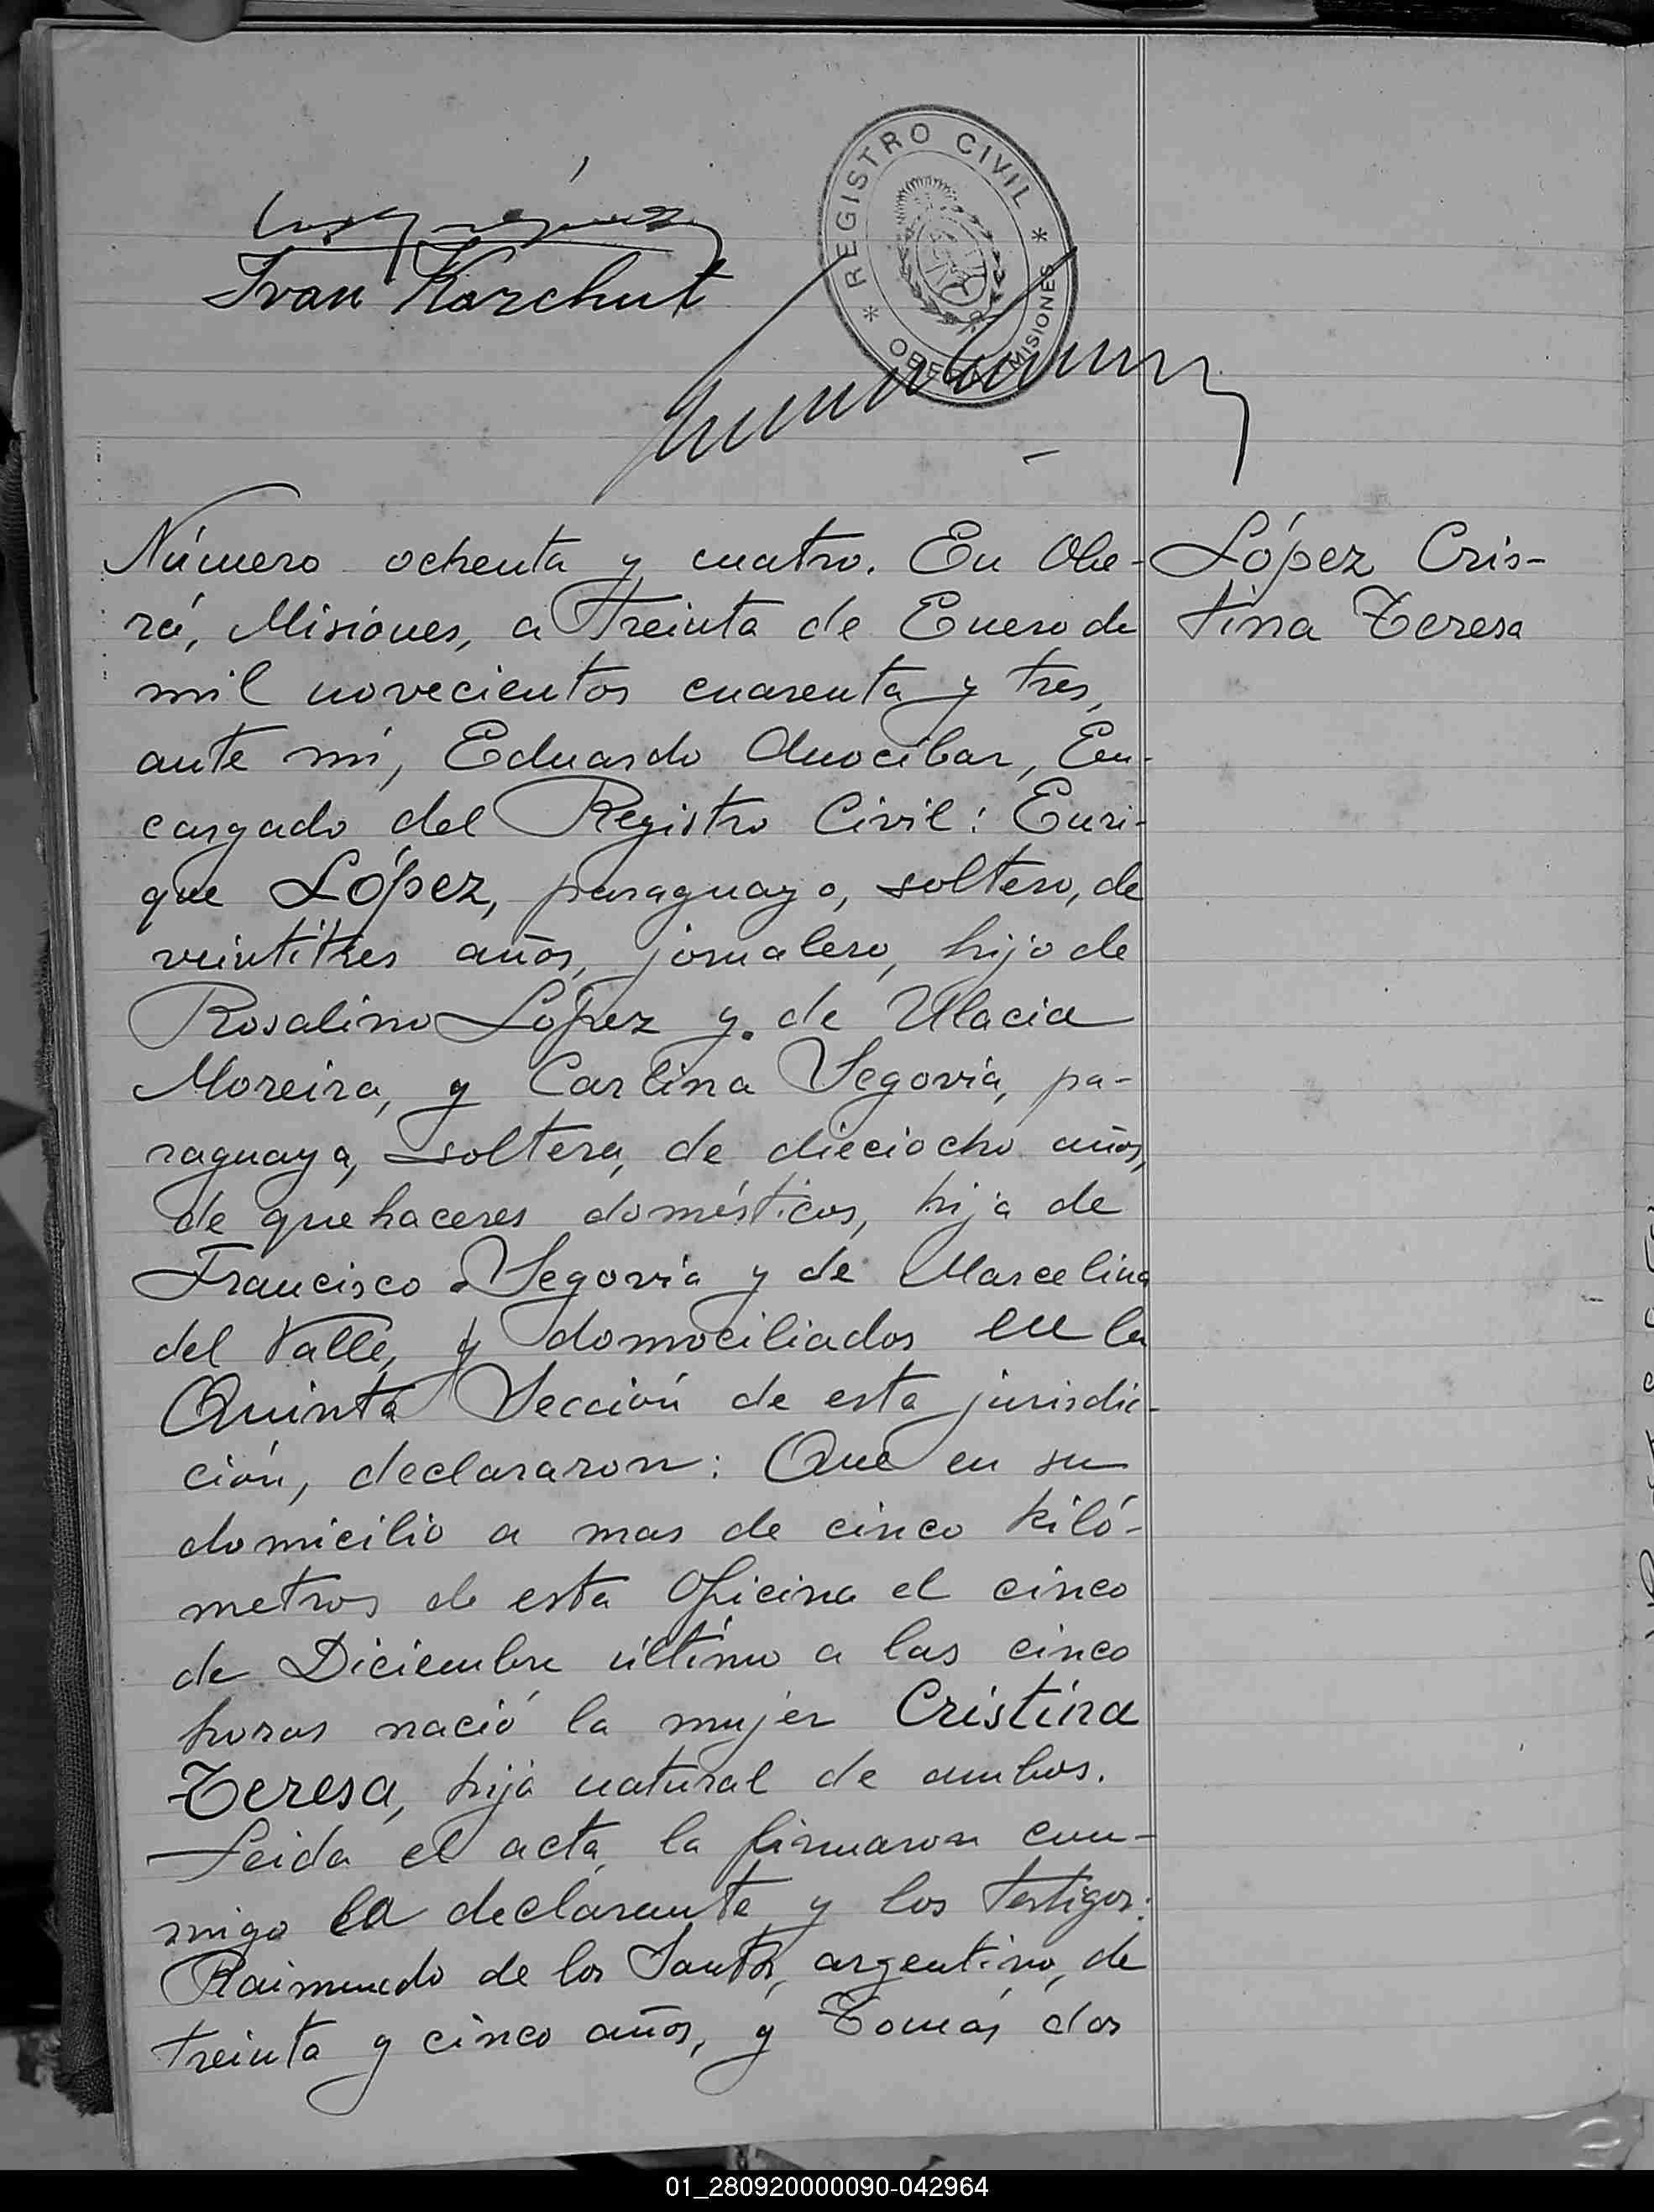 Ivan Karchut
* REGISTRO CIVIL *
OBERÁ MISIONES
Número ochenta y cuatro. En Obe-
rá, Misiones, a treinta de Enero de
mil novecientos cuarenta y tres,
ante mí, Eduardo Anocibar, En-
cargado del Registro Civil: Enri-
que López, paraguayo, soltero, de
veintitres años, jornalero, hijo de
Rosalino López y de Ulacia
Moreira, y Carlina Segovia, pa-
raguaya, soltera, de dieciocho años,
de quehaceres domésticos, hija de
Francisco Segovia y de Marcelina
del Valle, y domociliados en la
Quinta Sección de esta jurisdic-
ción, declararon: Que en su
domicilio a mas de cinco kiló-
metros de esta Oficina el cinco
de Diciembre último a las cinco
horas nació la mujer Cristina
Teresa, hija natural de ambos.
Leida el acta, la firmaron con-
migo la declarante y los testigos:
Raimundo de los Santos, argentino, de
treinta y cinco años, y Tomás dos
López Cris-
tina Teresa
01_280920000090-042964